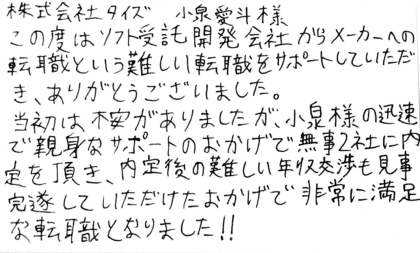 株式会社タイズ　小泉愛斗様
この度はソフト受託開発会社からメーカーへの
転職という難しい転職をサポートしていただ
き、ありがとうございました。
当初は不安がありましたが、小泉様の迅速
で親身なサポートのおかげで無事2社に内
定を頂き、内定後の難しい年収交渉も見事
完遂していただけたおかげで非常に満足
な転職となりました!!